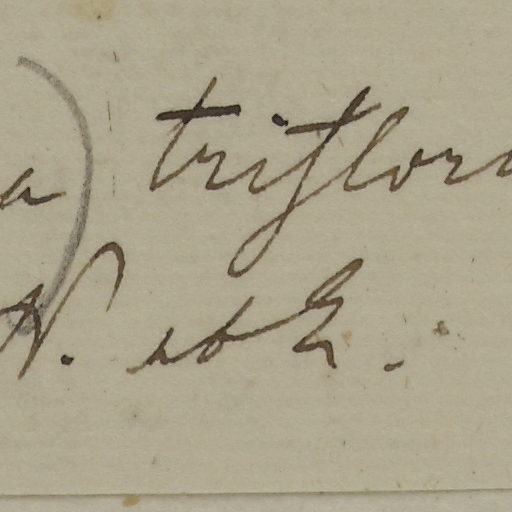 a) triflora
N. ab E.